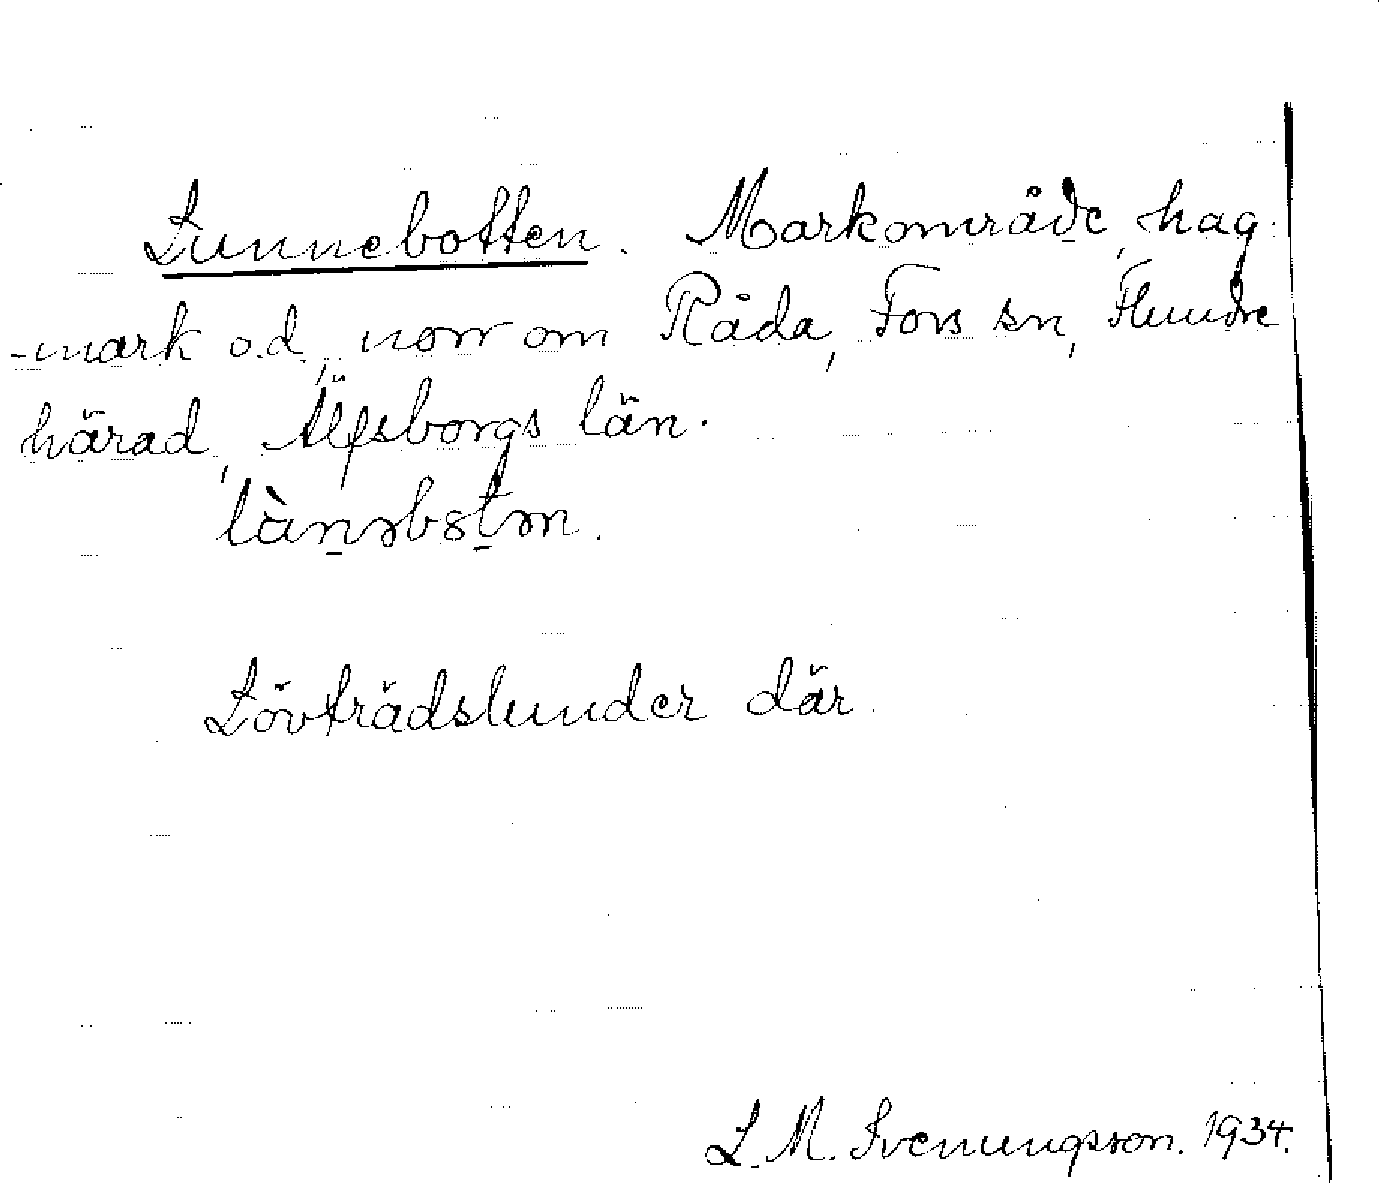 Lunnebotten. Markområde, hag-
-mark o.d., norr om Råda, Fors sn, Flundre
härad, Älfsborgs län.
lànəbstən.
Lövträdslunder där.
L. M. Svenungsson. 1934.